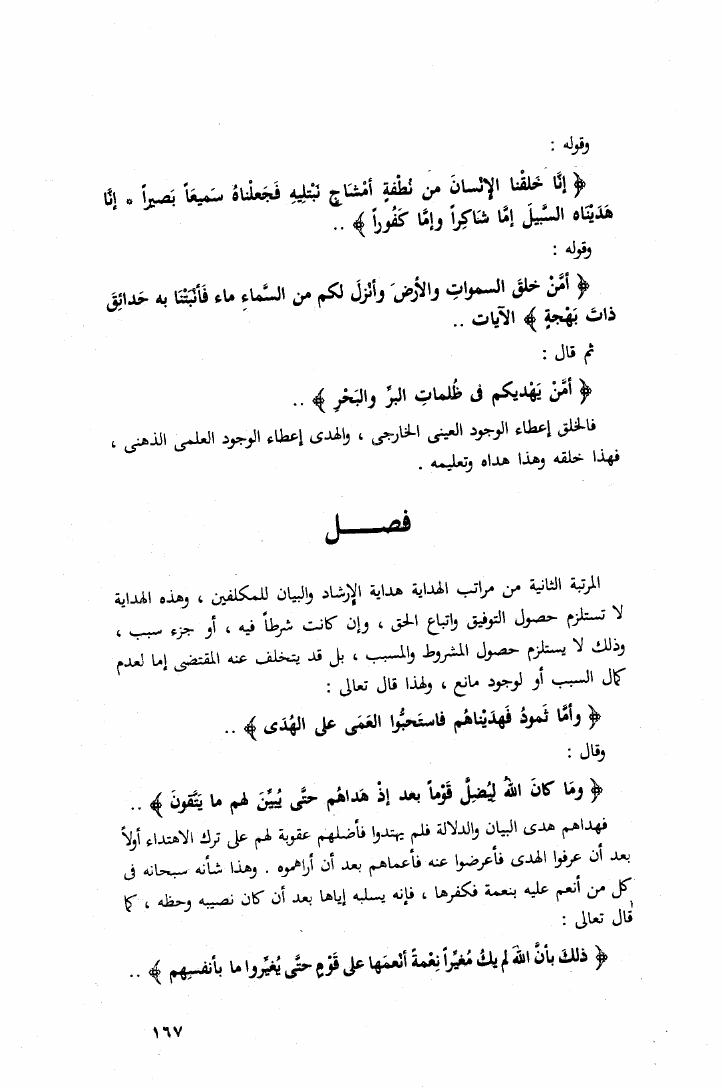 وقوله :
﴿ إنَّا خَلقْنا الإنْسانَ مِن نُطْفةٍ أمْشاجٍ نَبْتليهِ فَجَعلْناهُ سَميعَاً بَصيراً * إنَّا
هَدَيْنَاه السَّبيلَ إمَّا شَاكِراً وإمَّا كَفُوراً ﴾ ..
وقوله :
﴿ أمَّنْ خلقَ السمواتِ والأرضَ وأنْزلَ لكم من السَّماءِ ماء فَأنْبَتْنَا به حَدائِقَ
ذاتَ بَهْجةٍ ﴾ الآيات ..
ثم قال :
﴿ أمَّنْ يَهْديكم فى ظُلماتِ البرِّ والبَحْرِ ﴾ ..
فالخلق إعطاء الوجود العينى الخارجى ، والهدى إعطاء الوجود العلمى الذهنى ،
فهذا خلقه وهذا هداه وتعليمه .
فصـــل
المرتبة الثانية من مراتب الهداية هداية الإرشاد والبيان للمكلفين ، وهذه الهداية
لا تستلزم حصول التوفيق واتباع الحق ، وإن كانت شرطاً فيه ، أو جزء سبب ،
وذلك لا يستلزم حصول المشروط والمسبب ، بل قد يتخلف عنه المقتضى إما لعدم
كمال السبب أو لوجود مانع ، ولهذا قال تعالى :
﴿ وأمَّا ثَمودُ فَهدَيْناهُم فاستَحبُّوا العَمَى على الهُدَى ﴾ ..
وقال :
﴿ ومَا كانَ اللهُ لِيُضلَّ قَوْماً بعد إذْ هَداهُم حتَّى يُبيِّنَ لهم ما يَتَّقونَ ﴾ ..
فهداهم هدى البيان والدلالة فلم يهتدوا فأضلهم عقوبة لهم على ترك الاهتداء أولاً
بعد أن عرفوا الهدى فأعرضوا عنه فأعماهم بعد أن أراهموه . وهذا شأنه سبحانه فى
كل من أنعم عليه بنعمة فكفرها ، فإنه يسلبه إياها بعد أن كان نصيبه وحظه ، كما
قال تعالى :
﴿ ذلكَ بأنَّ اللهَ لم يكُ مُغيِّراً نِعْمةً أنْعمَها على قَوْمٍ حتَّى يُغيِّروا ما بأنفسِهم ﴾ ..
١٦٧